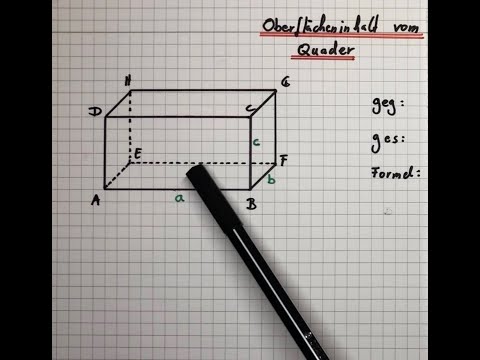 Oberflächeninhalt vom
Quader
H G
geg:
D C
c
ges:
E F
b
Formel:
A a B